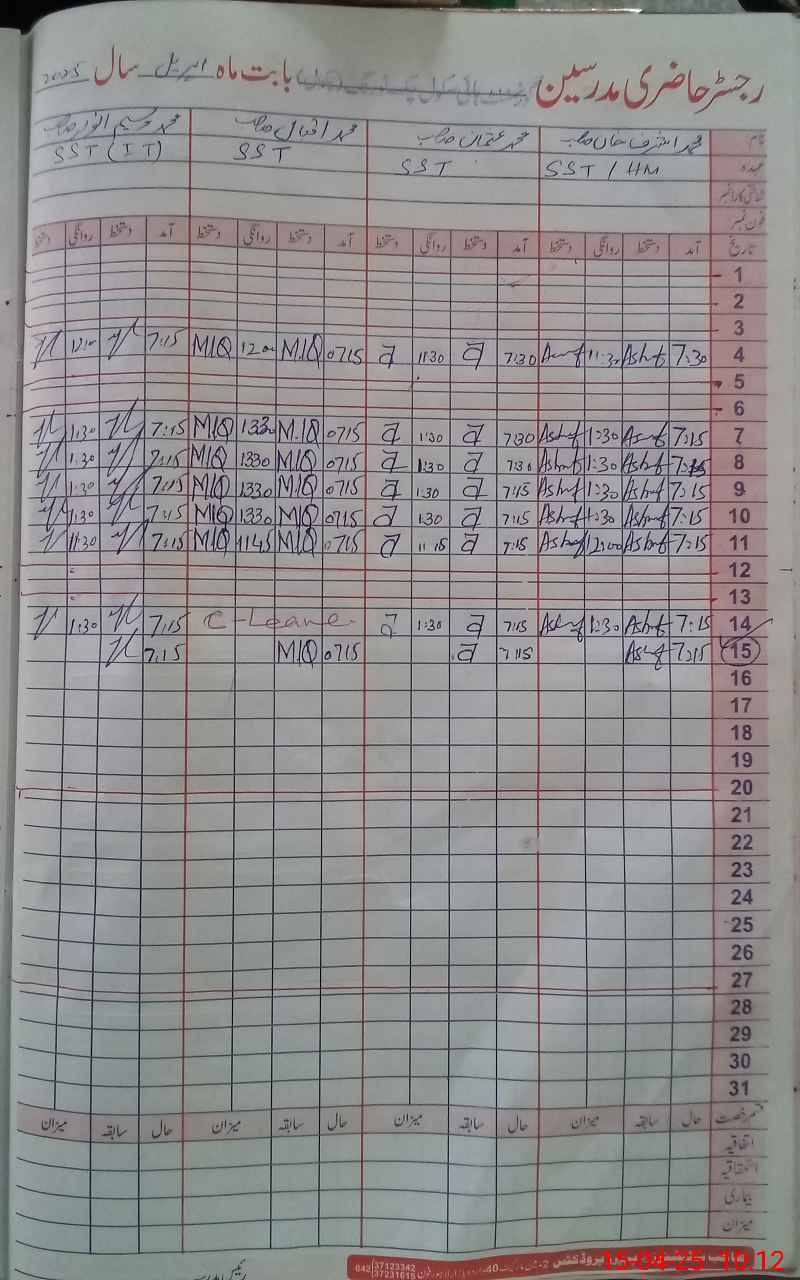 رجسٹر حاضری مدرسین گورنمنٹ ہائی سکول بابت ماہ اپریل سال 2025
نام محمد اشرف خان صاحب محمد عثمان صاحب محمد اقبال صاحب محمد وسیم انور صاحب
عہدہ SST / HM SST SST SST (IT)
شناختی کارڈ نمبر
فون نمبر
تاریخ آمد دستخط روانگی دستخط آمد دستخط روانگی دستخط آمد دستخط روانگی دستخط آمد دستخط روانگی دستخط
1
2
3
4 7:30 Ashraf 11:30 Ashraf 7:30 11:30 0715 MIQ 1200 MIQ 7:15 12:00
5
6
7 7:15 Ashraf 1:30 Ashraf 7:30 1:30 0715 MIQ 1330 MIQ 7:15 1:30
8 7:15 Ashraf 1:30 Ashraf 7:30 1:30 0715 MIQ 1330 MIQ 7:15 1:30
9 7:15 Ashraf 1:30 Ashraf 7:45 1:30 0715 MIQ 1330 MIQ 7:15 1:30
10 7:15 Ashraf 1:30 Ashraf 7:15 1:30 0715 MIQ 1330 MIQ 7:15 1:30
11 7:15 Ashraf 12:00 Ashraf 7:15 11:15 0715 MIQ 1145 MIQ 7:15 11:30
12
13
14 7:15 Ashraf 1:30 Ashraf 7:15 1:30 C-Leave 7:15 1:30
15 7:15 Ashraf 7:15 0715 MIQ 7:15
16
17
18
19
20
21
22
23
24
25
26
27
28
29
30
31
قسم رخصت حال سابقہ میزان حال سابقہ میزان حال سابقہ میزان حال سابقہ میزان
اتفاقیہ
استحقاقیہ
بیماری
میزان
042 37123342
37231615
15-04-25 10:12